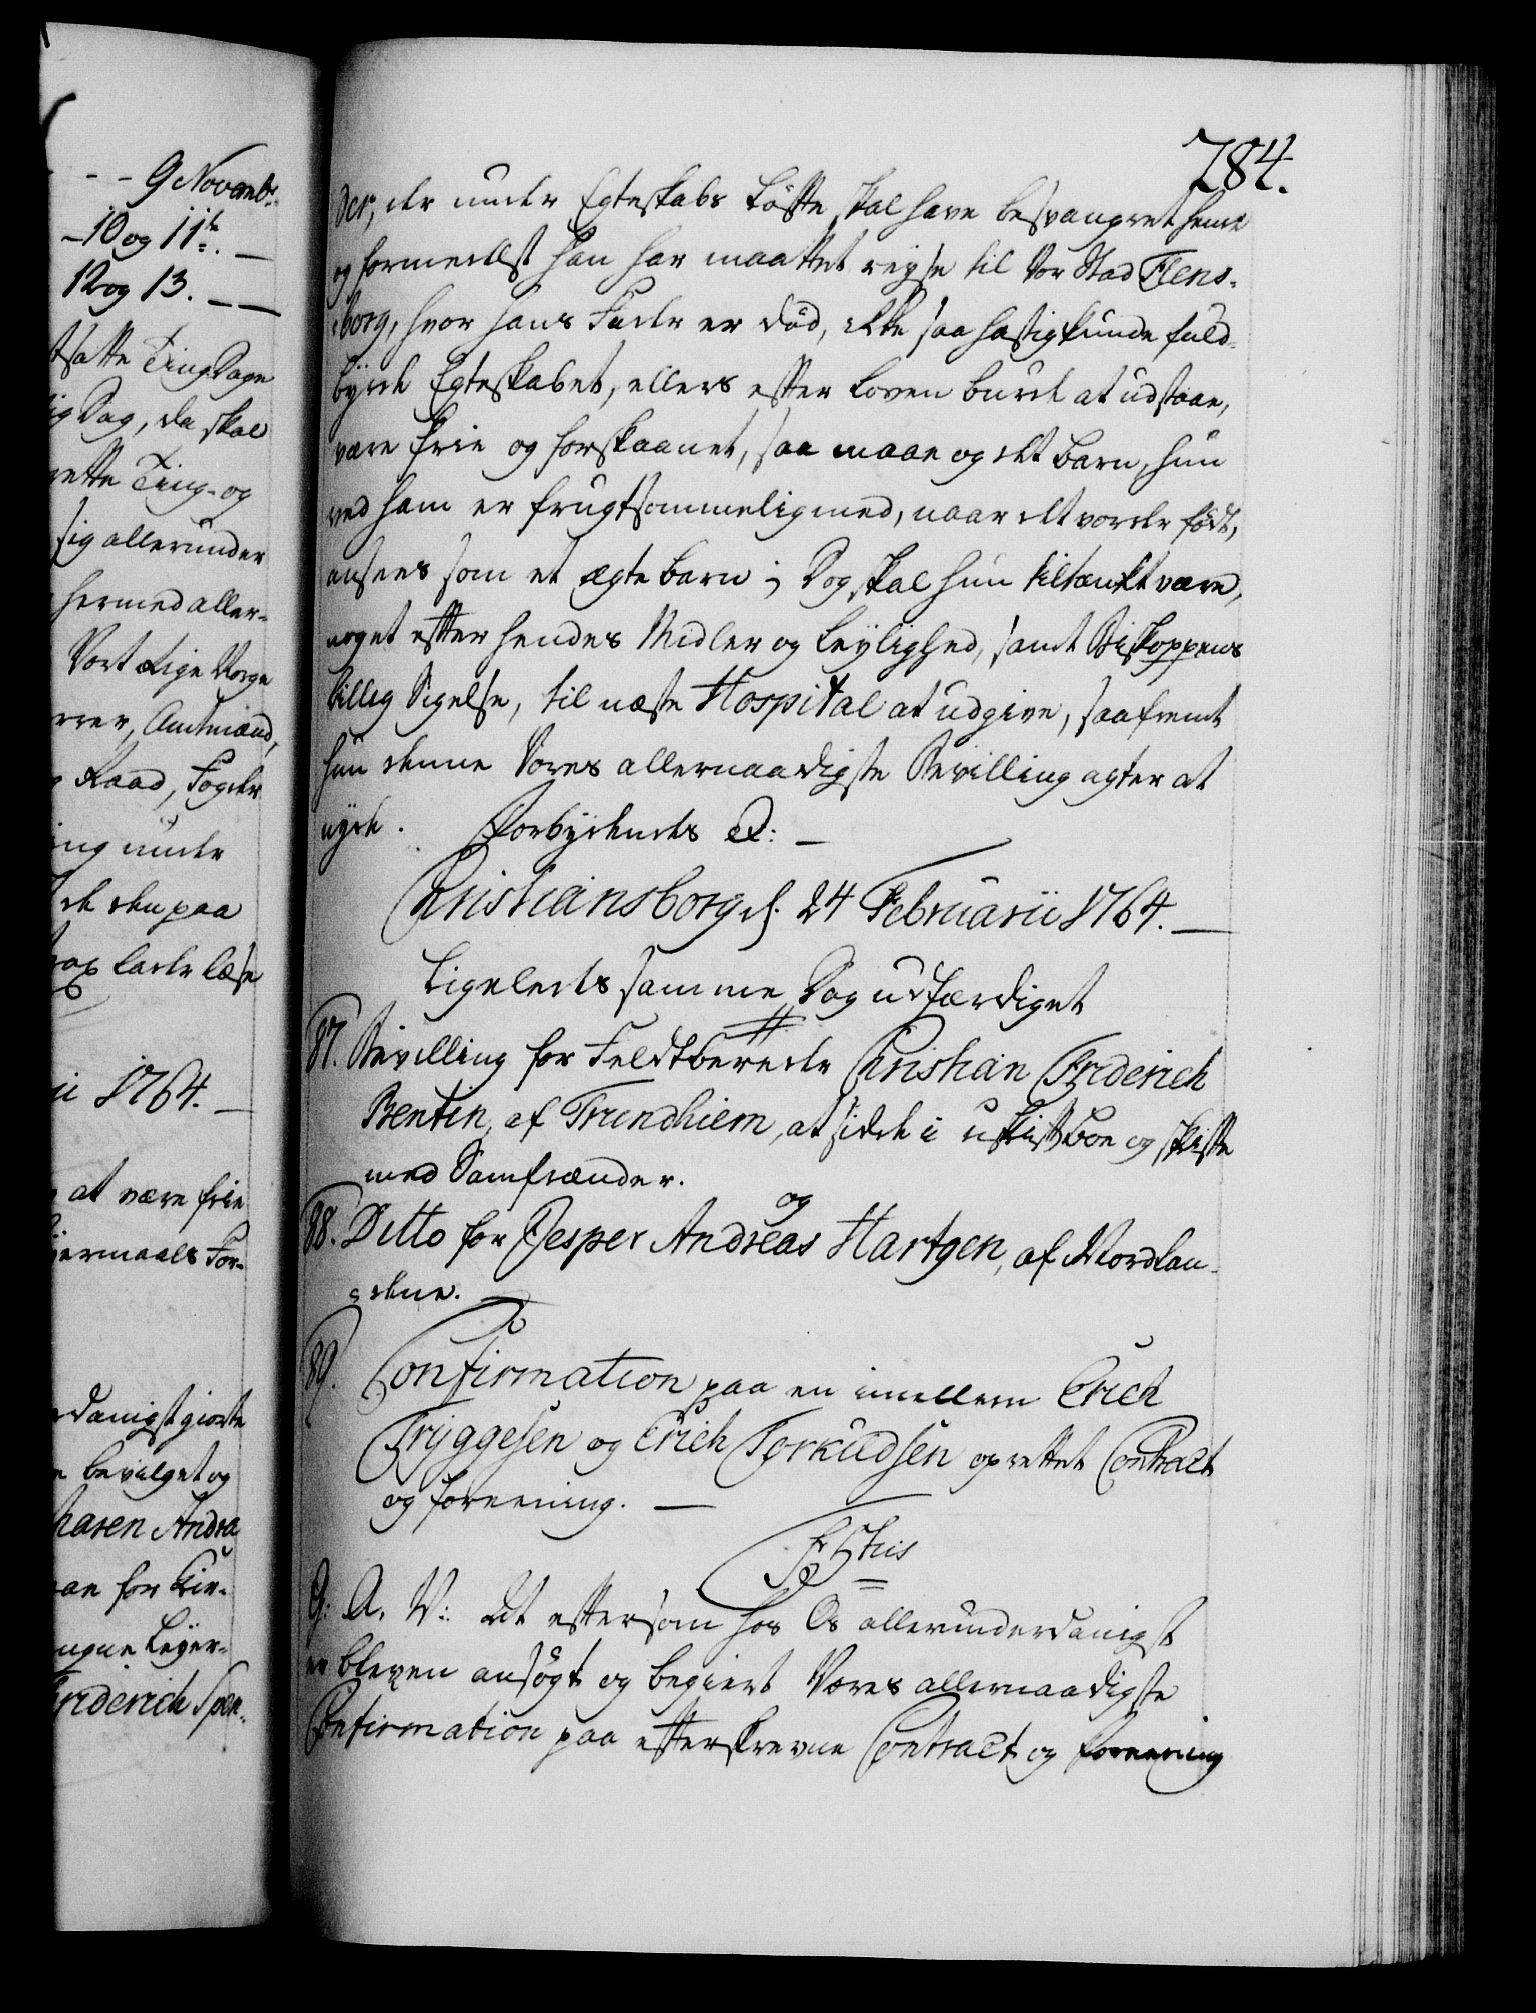 - - 9 Novembr:
- 10 og 11te. —
12 og 13. — —
tsatte Ting Dage
ig Dag, da skal
rette Ting- og
sig allerunder
hermed aller-
Vort Rige Norge
rrer, Amtmænd,
Raad, Fogder
ing under
de den paa
lade læse
ii 1764. —
at være frie
ermaals For-
danigst giorte
bevilget og
haren Andrea
an for Kir-
ngne Leyer-
riderich Spen-
784.
der, der under Egteskabs Løfte skal have besvangret hende
og formedelst han har maattet reyse til Vor Stad Flens-
borg, hvor hans Fader er død, ikke saa hastig kunde fuld-
byrde Egteskabet, ellers efter Loven burde at udstaae,
være frie og forskaanet, saa maae og det Barn, hun
ved ham er frugtsommelig med, naar det vorder født,
ansees som et ægte Barn; Dog skal hun tiltænkt være,
noget efter hendes Midler og Leylighed, samt Biskoppens
billig Sigelse, til næste Hospital at udgive, saafremt
hun denne Vores allernaadigste Bevilling agter at
nyde. Forbydendes &: —
Christiansborg d. 24 Februarii 1764. —
Ligeledes samme Dag udfærdiget
87. Bevilling for Feldtberede Christian Friderich
Bentin, af Trundhiem, at sidde i uskift Boe og skifte
med Samfrænder.
88. Ditto for Jesper Andreas og Hartgen, af Nordlan-
dene.
89. Confirmation paa en imellem Erich
Tryggesen og Erich Torkildsen oprettet Contract
og foreening. —
F 5tus
G: A. V: At eftersom hos Os allerunderdanigst
er bleven ansøgt og begiert Vores allernaadigste
Confirmation paa efterskrevne Contract og foreening